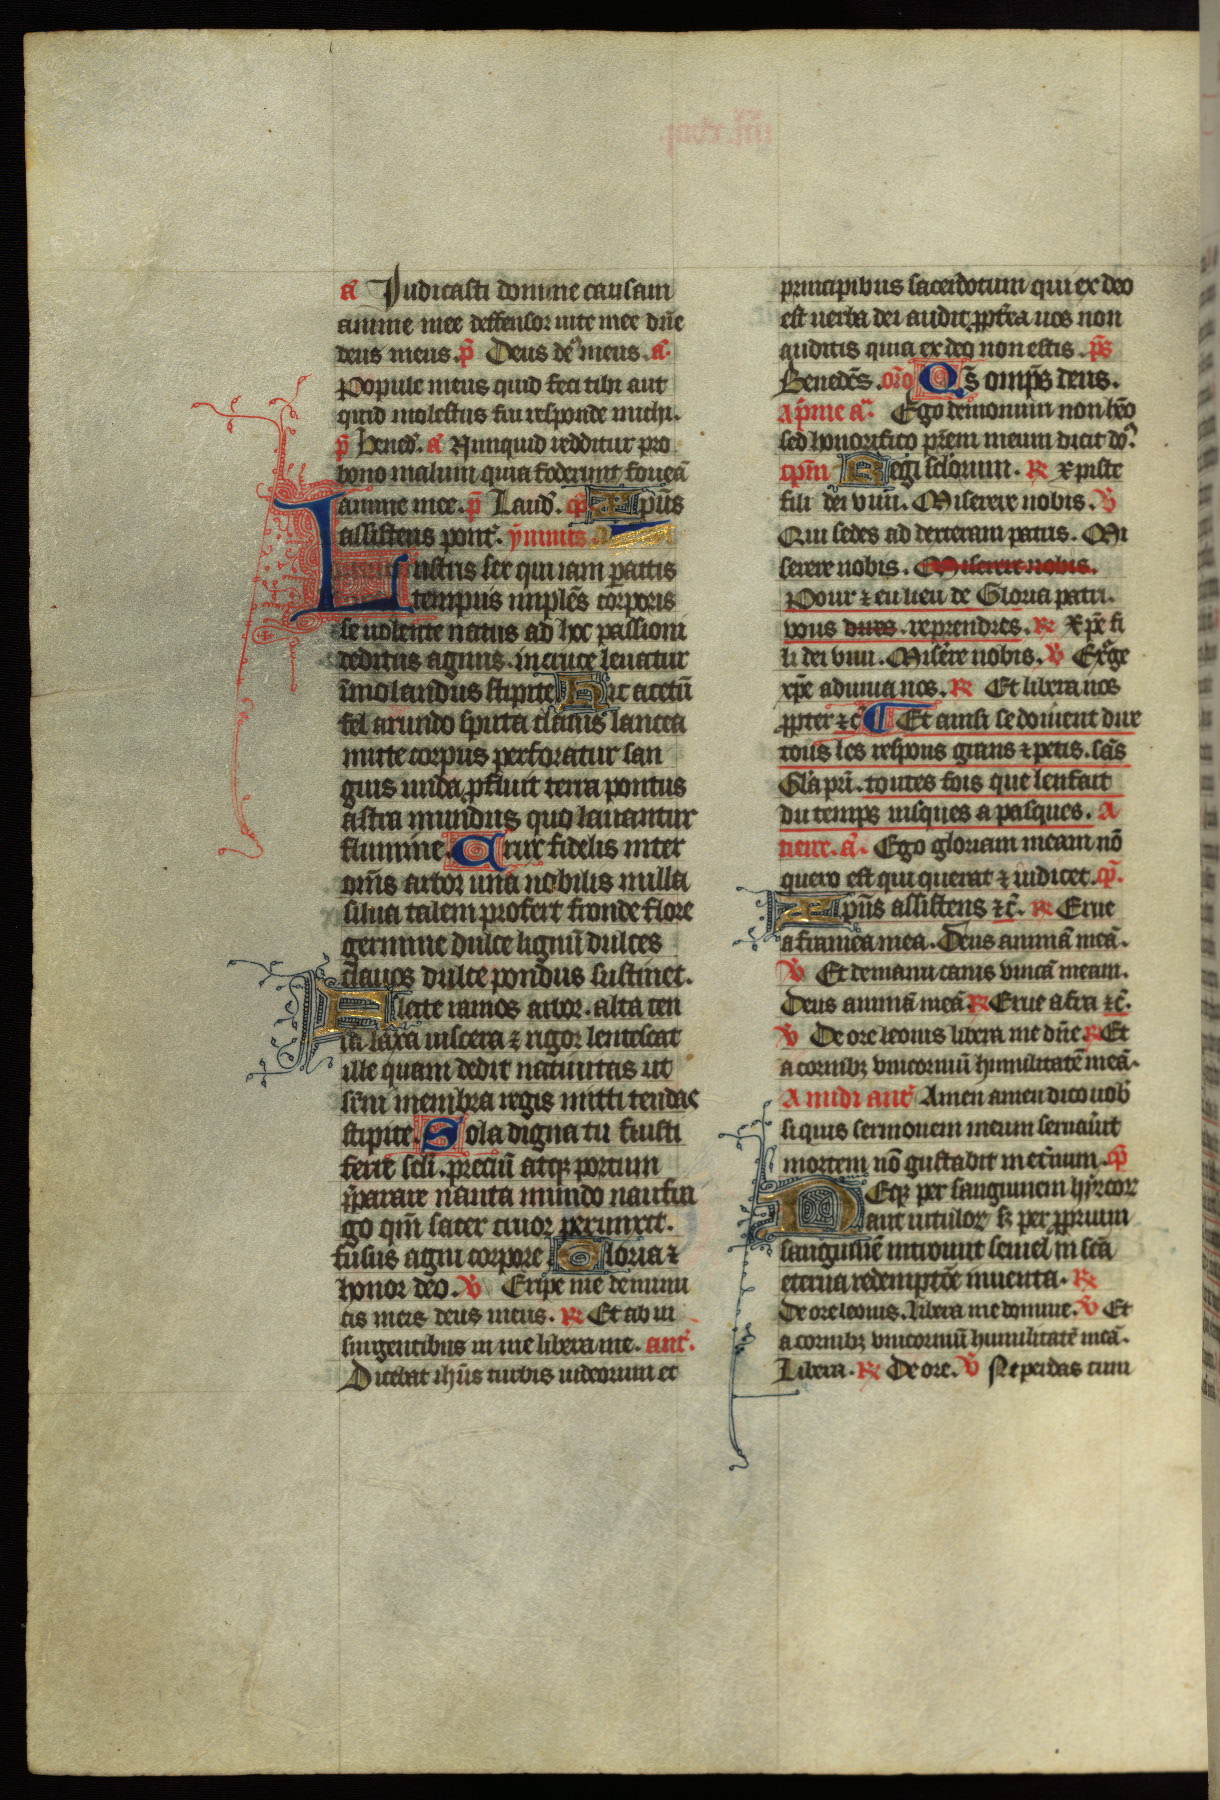 a Iudicasti domine causam
anime mee deffensor uite mee dñe
deus meus. p̃ Deus de᷒ meus. a᷒.
Popule meus quid feci tibi aut
quid molestus fui responde michi.
p̃ Bened᷒. a᷒ Nunquid redditur pro
bono malum quia foderunt foueã
anime mee. p̃ Laud᷒. cp̃ Xp̃us
assistens pont᷒. ỹmnus
Lustris sex qui iam p̱actis
tempus implẽs corporis
se uolente natus ad hoc passioni
deditus agnus. in cruce leuatur
ĩmolandus stipite Hic acetũ
fel arundo sputa claui᷒ lancea
mitte corpus perforatur san
guis unda p̱fluit terra pontus
astra mundus quo lauantur
flumine. Crux fidelis inter
om̃s arbor una nobilis nulla
silua talem profert fronde flore
germine dulce lignũ dulces
clauos dulce pondus sustinet.
Flecte ramos arbor. alta ten
sa laxa uiscera ⁊ rigor lentescat
ille quam dedit natiuitas ut
sup̃ni membra regis mitti tendas
stipite. Sola digna tu fuisti
ferre scl̃i. preciũ atqꝫ portum
p̃parare nauta mundo naufra
go qm̃ sacer cruor perunxit.
fusus agni corpore Gloria ⁊
honor deo. ℣ Eripe me de inimi
cis meis deus meus. ℟ Et ab in
surgentibus in me libera me. ant᷒.
Dicebat ihũs turbis iudeorum et
principibus sacerdotum qui ex deo
est uerba dei audit pp̱t̃ea uos non
auditis quia ex deo non estis. ps̃
Benedc̃s. orõ Qs̃ omp̃s deus.
A p̃me a᷒. Ego demonium non hẽo
sed honorifico pr̃em meum dicit dõ᷒
cpm̃ Regi sclorum. ℟ Xp̃iste
fili dei viui. Miserere nobis. ℣
Qui sedes ad dexteram patris. Mi
serere nobis. Miserere nobis.
Pour ⁊ en lieu de Gloria patri.
vous dires. reprendres. ℟ Xp̃e fi
li dei viui. Miserẽre nobis. ℣ Exg̃e
xp̃e adiuua nos. ℟ Et libera nos
pp̱ter ⁊c̃ ¶ Et ainsi se doiuent dire
tous les respons grans ⁊ petis. sãs
Gl̃a pri᷒. toutes fois que len fait
du temps iusques a pasques. A
tierce. a᷒. Ego gloriam meam nõ
quero est qui querat ⁊ iudicet. cp̃.
Xp̃us assistens ⁊c̃. ℟ Erue
a framea mea. Deus animã meã.
℣ Et de manu canis vnicã meam.
Deus animã meã ℟ Erue a fra ⁊c̃.
℣ De ore leonis libera me dñe ℟ Et
a cornibꝫ vnicorniũ humilitatẽ meã.
A midi ant᷒ Amen amen dico uob᷒
si quis sermonem meum seruau᷒it
mortem nõ gustabit inet̃num. cp̃
Neqꝫ per sanguinem hyrcoꝝ
aut uituloꝝ ꝫ per pp̱rium
sanguinẽ introiuit semel in sc̃a
eterna redemptõe inuenta. ℟
De ore leonis. Libera me domine. ℣ Et
a cornibꝫ vnicorniũ humilitatẽ meã.
Libera. ℟ De ore. ℣ Ne perdas cum